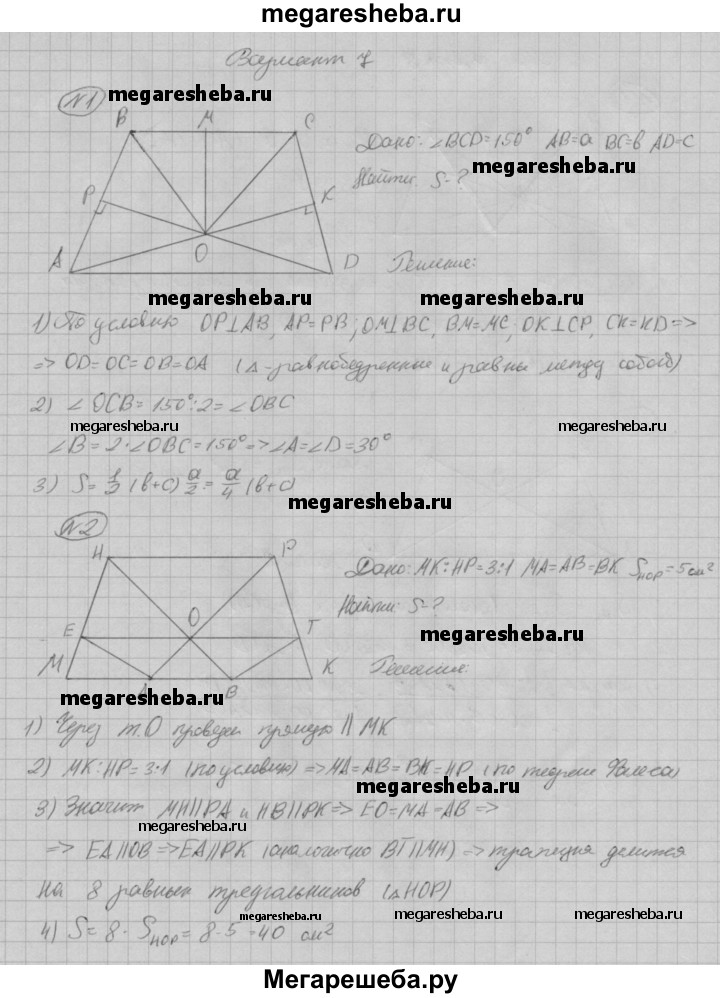 megaresheba.ru
Вариант 7
№1 megaresheba.ru
B M C
Дано: ∠BCD=150° AB=a BC=b AD=c
megaresheba.ru
Найти: S-?
P K
megaresheba.ru megaresheba.ru
O
A D Решение:
megaresheba.ru megaresheba.ru
1) По условию OP⊥AB, AP=PB; OM⊥BC, BM=MC; OK⊥CP, CK=KD=>
=> OD=OC=OB=OA (Δ-равнобедренные и равны между собой)
2) ∠OCB=150°:2=∠OBC
megaresheba.ru megaresheba.ru
∠B=2·∠OBC=150°=>∠A=∠D=30°
3) S=1/2 (b+c) a/2 = a/4 (b+c)
megaresheba.ru
№2
H P
Дано: MK:HP=3:1 MA=AB=BK Sнор=5см²
Найти: S-?
O
E T
megaresheba.ru
M A B K Решение:
megaresheba.ru
1) Через т.O проведем прямую || MK
2) MK:HP=3:1 (по условию) => MA=AB=BK=HP (по теореме Фалеса)
megaresheba.ru
3) Значит MH||PA и HB||PK=> EO=MA=AB =>
megaresheba.ru
=> EA||OB =>EA||PK (аналогично BT||MH) => трапеция делится
на 8 равных треугольников (ΔHOP)
megaresheba.ru megaresheba.ru
4) S=8·Sнор=8·5=40 см²
megaresheba.ru
Мегарешеба.ру